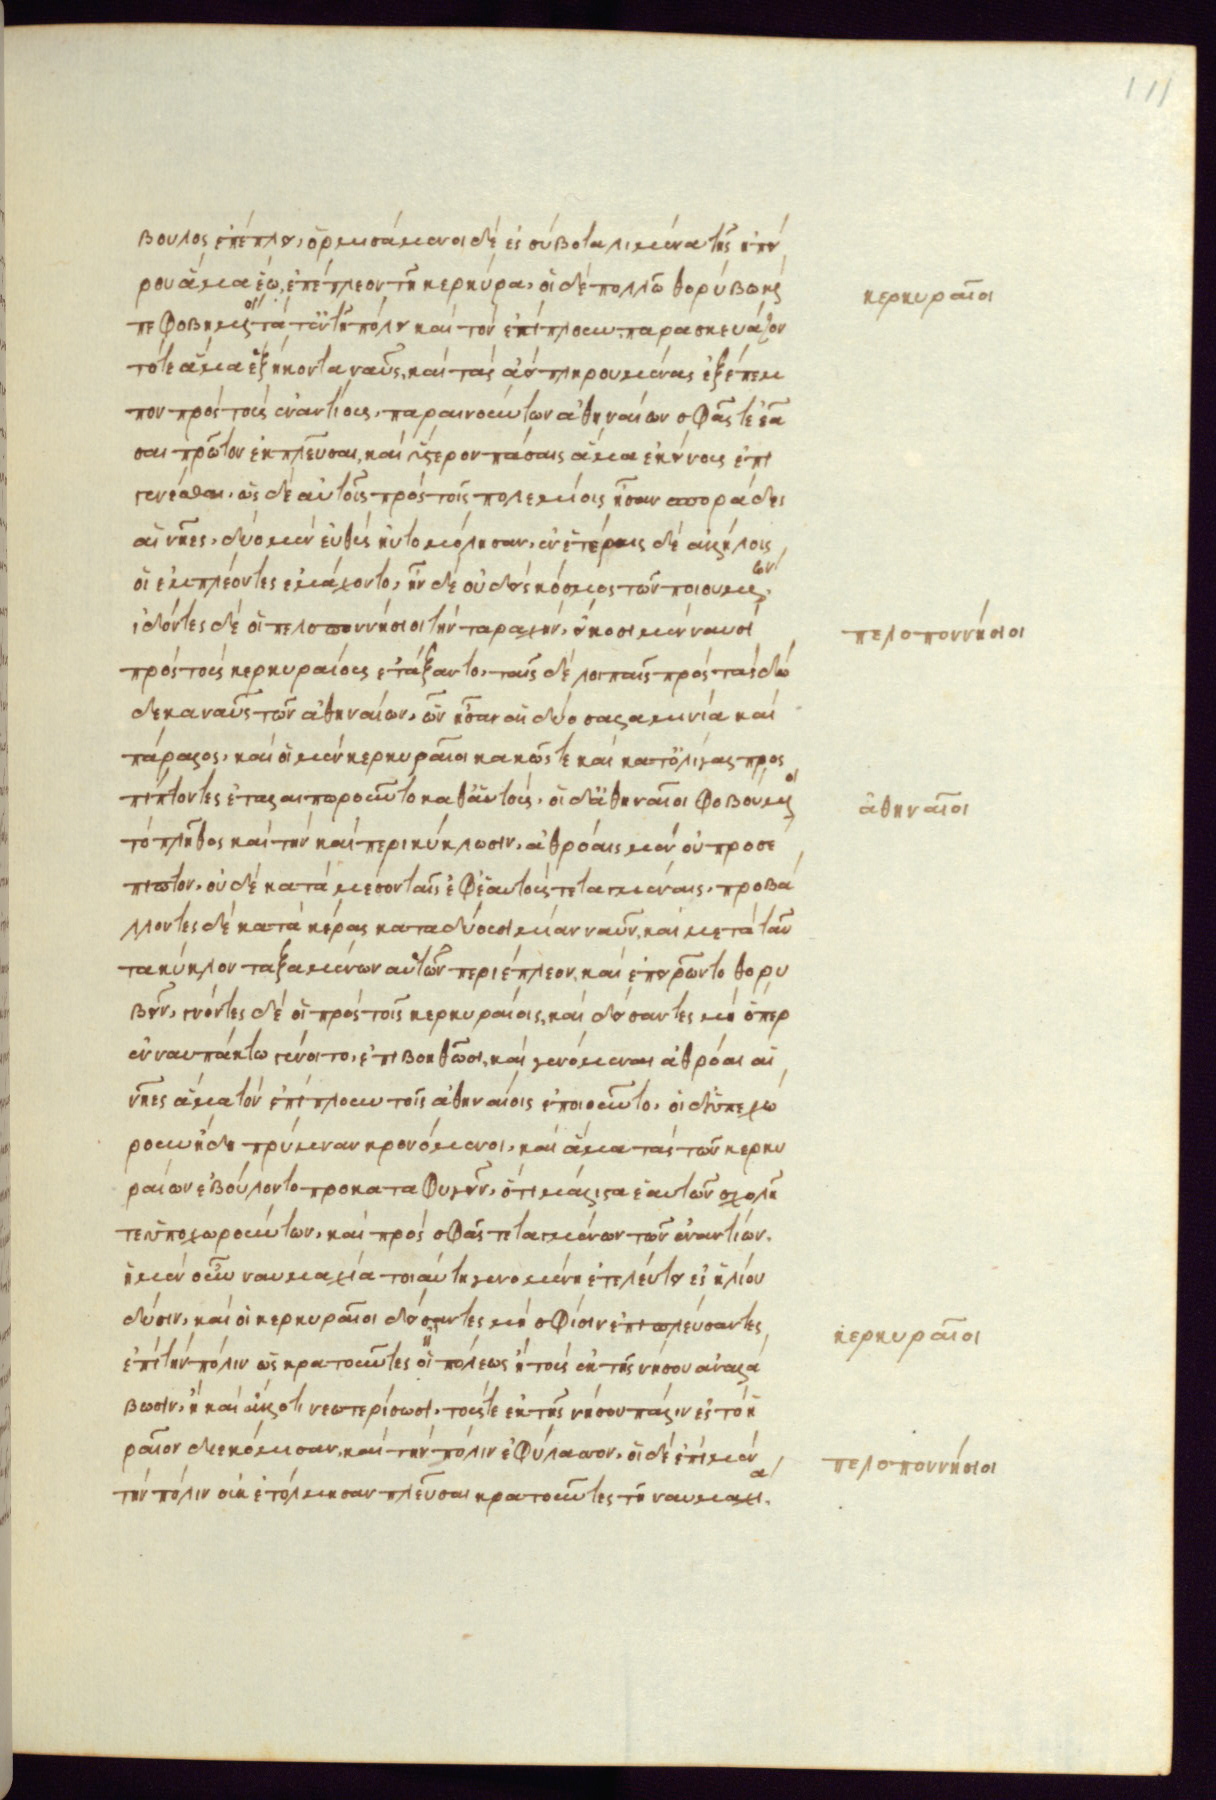 111
βουλος ἐπέπλει, ὁρμισάμενοι δὲ ἐς σύβοτα λιμένα τῆς ἠπεί
ρου ἅμα ἕῳ, ἐπέπλεον τῇ κερκύρᾳ, οἱ δὲ πολλῷ θορύβῳ καὶ
πεφοβημένοι τά τ' ἐν τῇ πόλει καὶ τὸν ἐπίπλουν, παρασκευάζον
τό τε ἅμα ἑξήκοντα ναῦς, καὶ τὰς ἀεὶ πληρουμένας ἐξέπεμ
πον πρὸς τοὺς ἐναντίους, παραινούντων ἀθηναίων σφᾶς τε ἐᾶ
σαι πρῶτον ἐκπλεῦσαι, καὶ ὕστερον πάσαις ἅμα ἐκείνους ἐπι
γενέσθαι, ὡς δὲ αὐτοῖς πρὸς τοῖς πολεμίοις ἦσαν σποράδες
αἱ νῆες, δύο μὲν εὐθὺς ηὐτομόλησαν, ἐν ἑτέραις δὲ ἀλλήλοις
οἱ ἐμπλέοντες ἐμάχοντο, ἦν δὲ οὐδεὶς κόσμος τῶν ποιουμένων.
ἰδόντες δὲ οἱ πελοποννήσιοι τὴν ταραχήν, εἴκοσι μὲν ναυσὶ
πρὸς τοὺς κερκυραίους ἐτάξαντο, ταῖς δὲ λοιπαῖς πρὸς τὰς δώ
δεκα ναῦς τῶν ἀθηναίων, ὧν ἦσαν αἱ δύο σαλαμινία καὶ
πάραλος, καὶ οἱ μὲν κερκυραῖοι κακῶς τε καὶ κατ' ὀλίγας προς
πίπτοντες ἐταλαιπωροῦντο καθ' αὑτούς, οἱ δ' ἀθηναῖοι φοβούμενοι
τὸ πλῆθος καὶ τὴν καὶ περικύκλωσιν, ἀθρόαις μὲν οὐ προσέ
πιπτον, οὐδὲ κατὰ μέσον ταῖς ἐφ' ἑαυτοὺς τεταγμέναις, προβα
λλοντες δὲ κατὰ κέρας καταδύουσι μίαν ναῦν, καὶ μετὰ ταῦ
τα κύκλον ταξαμένων αὐτῶν περιέπλεον, καὶ ἐπειρῶντο θορυ
βεῖν, γνόντες δὲ οἱ πρὸς τοῖς κερκυραίοις, καὶ δείσαντες μὴ ὅπερ
ἐν ναυπάκτῳ γένοιτο, ἐπιβοηθῶσι, καὶ γενόμεναι ἀθρόαι αἱ
νῆες ἅμα τὸν ἐπίπλουν τοῖς ἀθηναίοις ἐποιοῦντο, οἱ δ' ὑπεχώ
ρουν ἤδη πρύμναν κρουόμενοι, καὶ ἅμα τὰς τῶν κερκυ
ραίων ἐβούλοντο προκαταφυγεῖν, ὅτι μάλιστα ἑαυτῶν σχολῇ
τε ὑποχωρούντων, καὶ πρὸς σφᾶς τεταγμένων τῶν ἐναντίων.
ἡ μὲν οὖν ναυμαχία τοιαύτη γενομένη ἐτελεύτα ἐς ἡλίου
δύσιν, καὶ οἱ κερκυραῖοι δείσαντες μὴ σφίσιν ἐπιπλεύσαντες
ἐπὶ τὴν πόλιν ὡς κρατοῦντες οἱ πολέμιοι ἢ τοὺς ἐκ τῆς νήσου ἀναλά
βωσιν, ἢ καὶ ἄλλο τι νεωτερίσωσι, τούς τε ἐκ τῆς νήσου πάλιν ἐς τὸ ἡ
ραῖον διεκόμισαν, καὶ τὴν πόλιν ἐφύλασσον, οἱ δὲ ἐπὶ μὲν
τὴν πόλιν οὐκ ἐτόλμησαν πλεῦσαι κρατοῦντες τῇ ναυμαχίᾳ.
κερκυραῖοι
πελοποννήσιοι
ἀθηναῖοι
κερκυραῖοι
πελοποννήσιοι